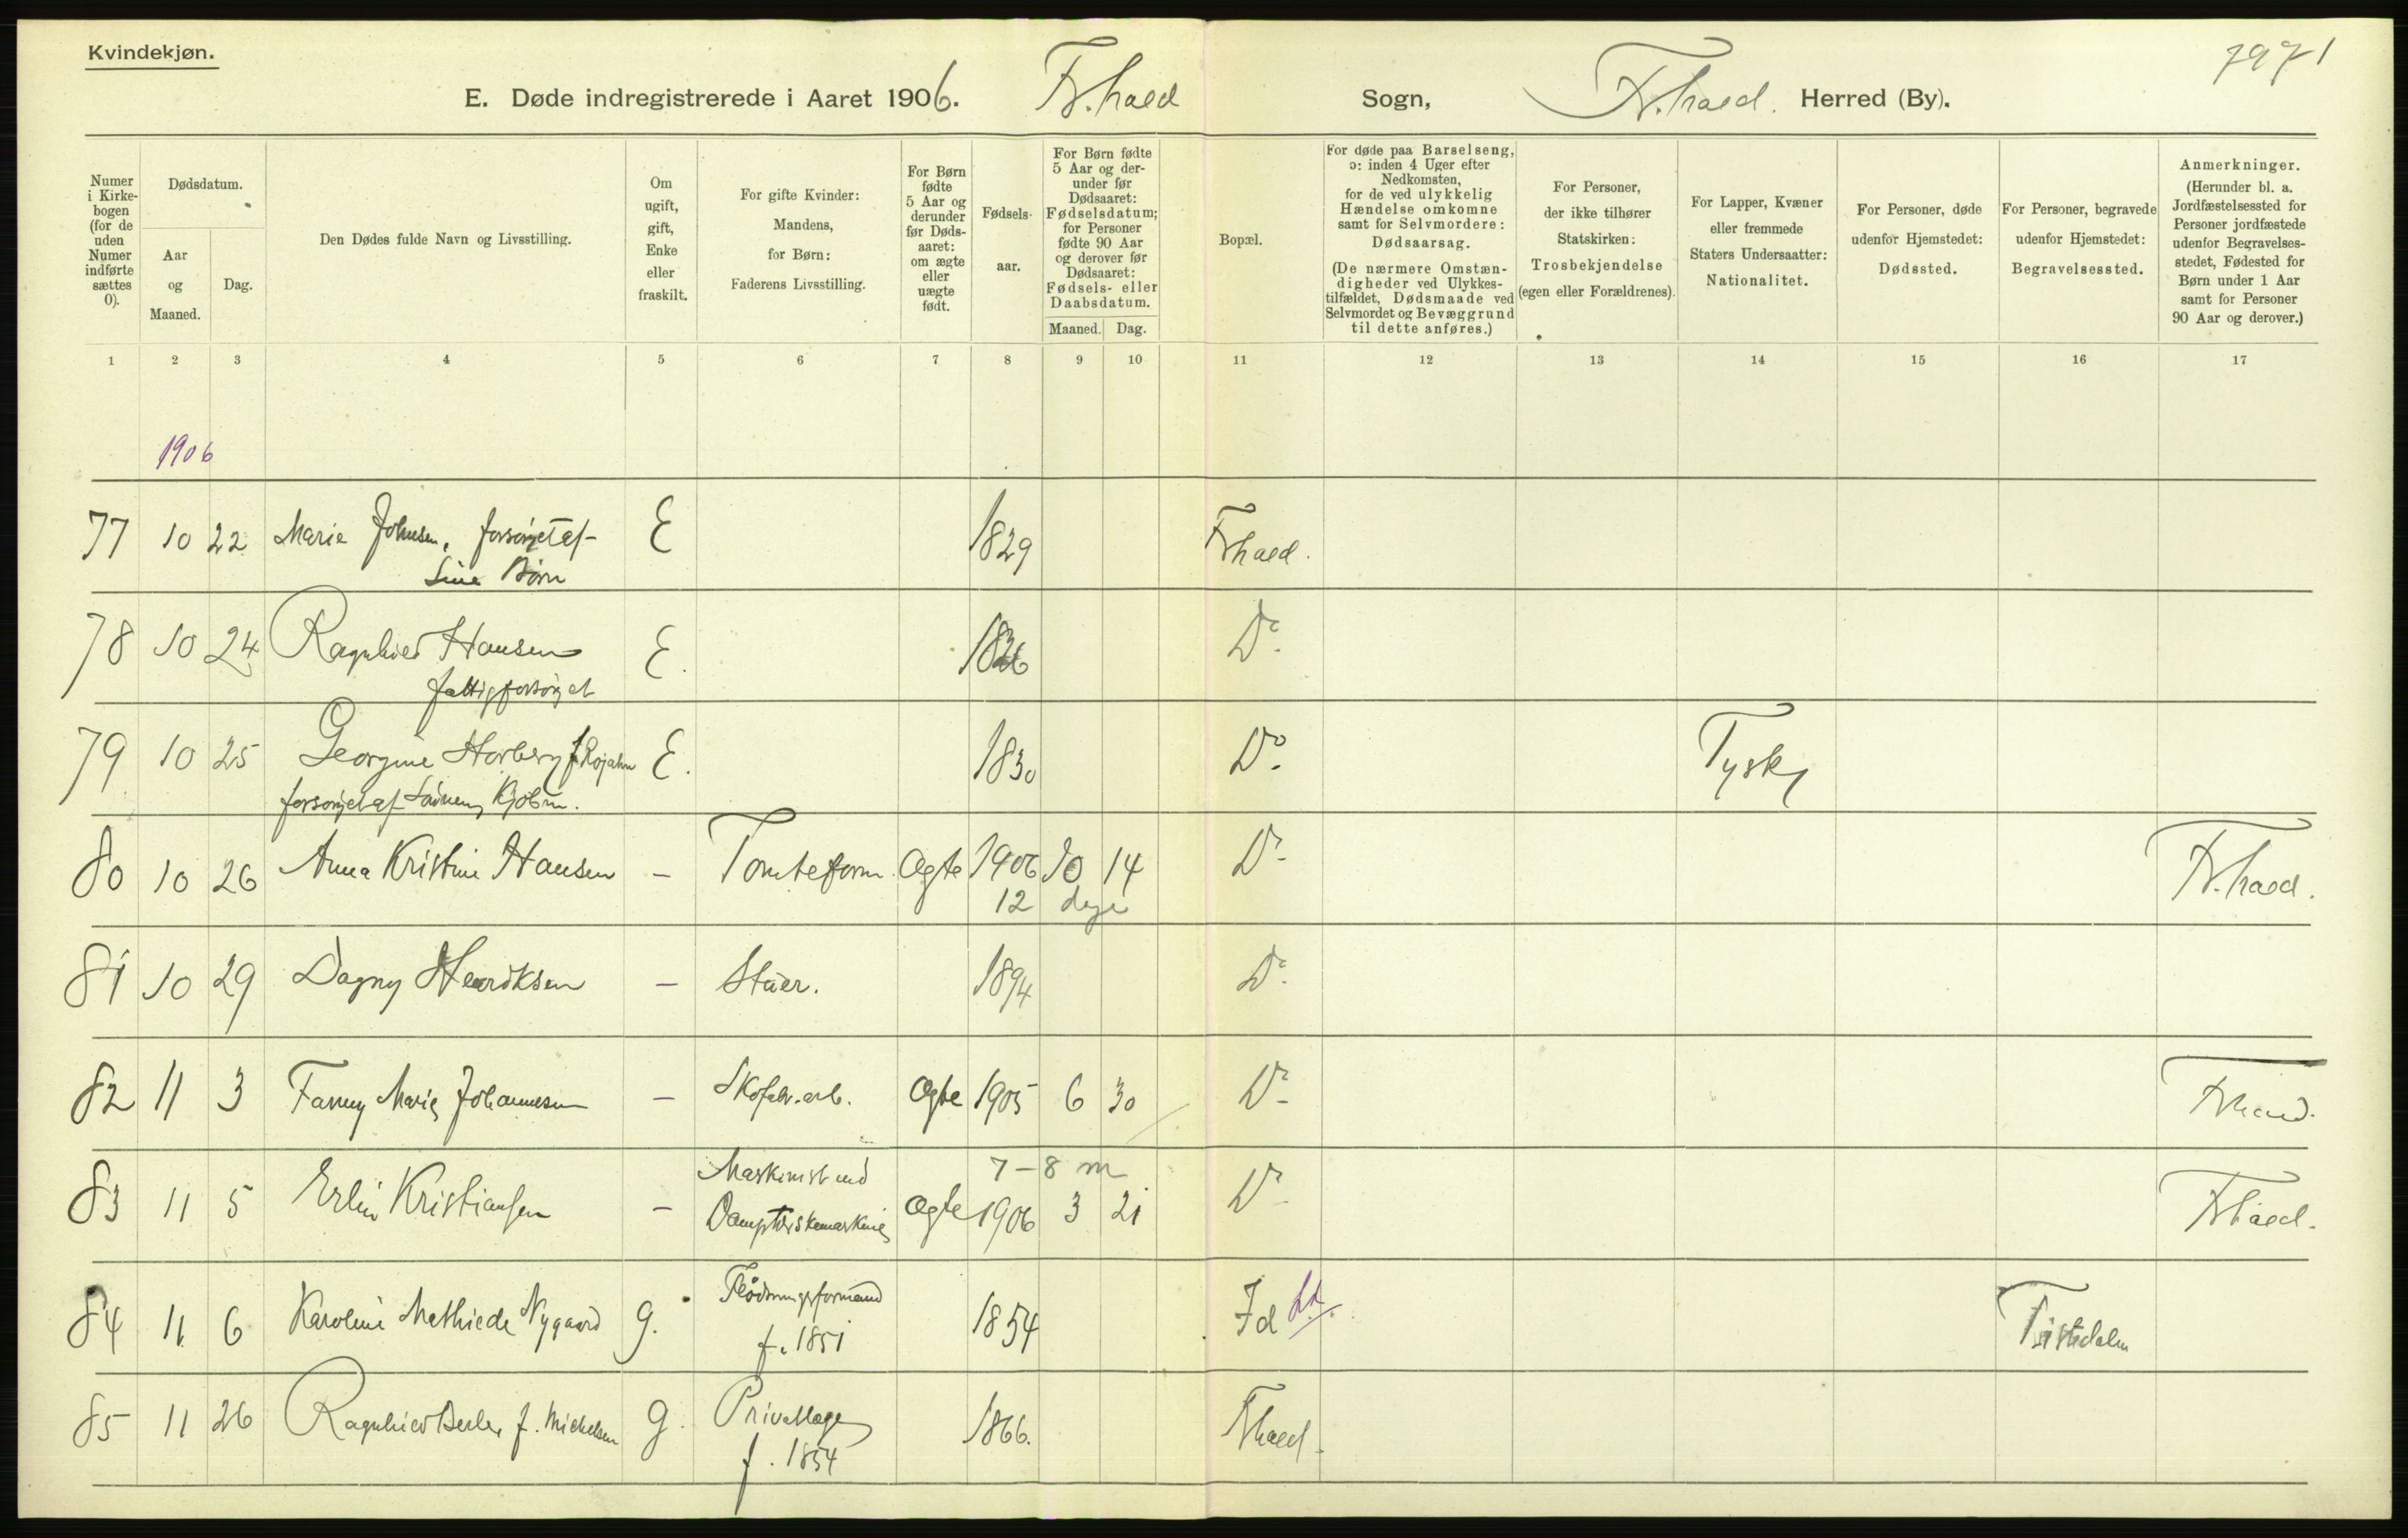 Kvindekjøn.
7971
E. Døde indregistrerede i Aaret 1906. Fr.hald Sogn, Fr.hald. Herred (By).
Numer i Kirke-bogen (for de uden Numer indførte sættes 0).
Dødsdatum.
Aar og Maaned.
Dag.
Den Dødes fulde Navn og Livsstilling.
Om ugift, gift, Enke eller fraskilt.
For gifte Kvinder: Mandens, for Børn: Faderens Livsstilling.
For Børn fødte 5 Aar og derunder før Døds-aaret: om ægte eller uægte født.
Fødsels-aar.
For Børn fødte 5 Aar og der-under før Dødsaaret: Fødselsdatum; for Personer fødte 90 Aar og derover før Dødsaaret: Fødsels- eller Daabsdatum.
Maaned. Dag.
Bopæl.
For døde paa Barselseng, ɔ: inden 4 Uger efter Nedkomsten, for de ved ulykkelig Hændelse omkomne samt for Selvmordere: Dødsaarsag.
(De nærmere Omstæn-digheder ved Ulykkes-tilfældet, Dødsmaade ved Selvmordet og Bevæggrund til dette anføres.)
For Personer, der ikke tilhører Statskirken: Trosbekjendelse (egen eller Forældrenes).
For Lapper, Kvæner eller fremmede Staters Undersaatter: Nationalitet.
For Personer, døde udenfor Hjemstedet: Dødssted.
For Personer, begravede udenfor Hjemstedet: Begravelsessted.
Anmerkninger.
(Herunder bl. a. Jordfæstelsessted for Personer jordfæstede udenfor Begravelses-stedet, Fødested for Børn under 1 Aar samt for Personer 90 Aar og derover.)
1 2 3 4 5 6 7 8 9 10 11 12 13 14 15 16 17
1906
77 10 22 Marie Johnsen, forsørget af E 1829 Frhald.
Sine Børn
78 10 24 Ragnhild Hansen E. 1826 Do
fattigforsørget
79 10 25 Georgine Horberg f. Rojahn E. 1830 Do Tysk
forsørget af Kjøbm.
80 10 26 Anna Kristine Hansen - Tomteform. Ægte 1906 10 14 Do Fr.hald.
12 dage
81 10 29 Dagny Henriksen - Stuer. 1894 Do
82 11 3 Fanny Marie Johannesen - Skofabr.arb. Ægte 1905 6 30 Do Frhald.
Maskinist ved 7-8 m
83 11 5 Erlin Kristiansen - Damptærskemaskine Ægte 1906 3 21 Do Frhald.
Flødningsformand
84 11 6 Karoline Mathilde Nygaard g. f. 1851 1854 Id Ld. Tistedalen
85 11 26 Ragnhild f. Michelsen g. Privatlæge 1866. Frhald.
f. 1854